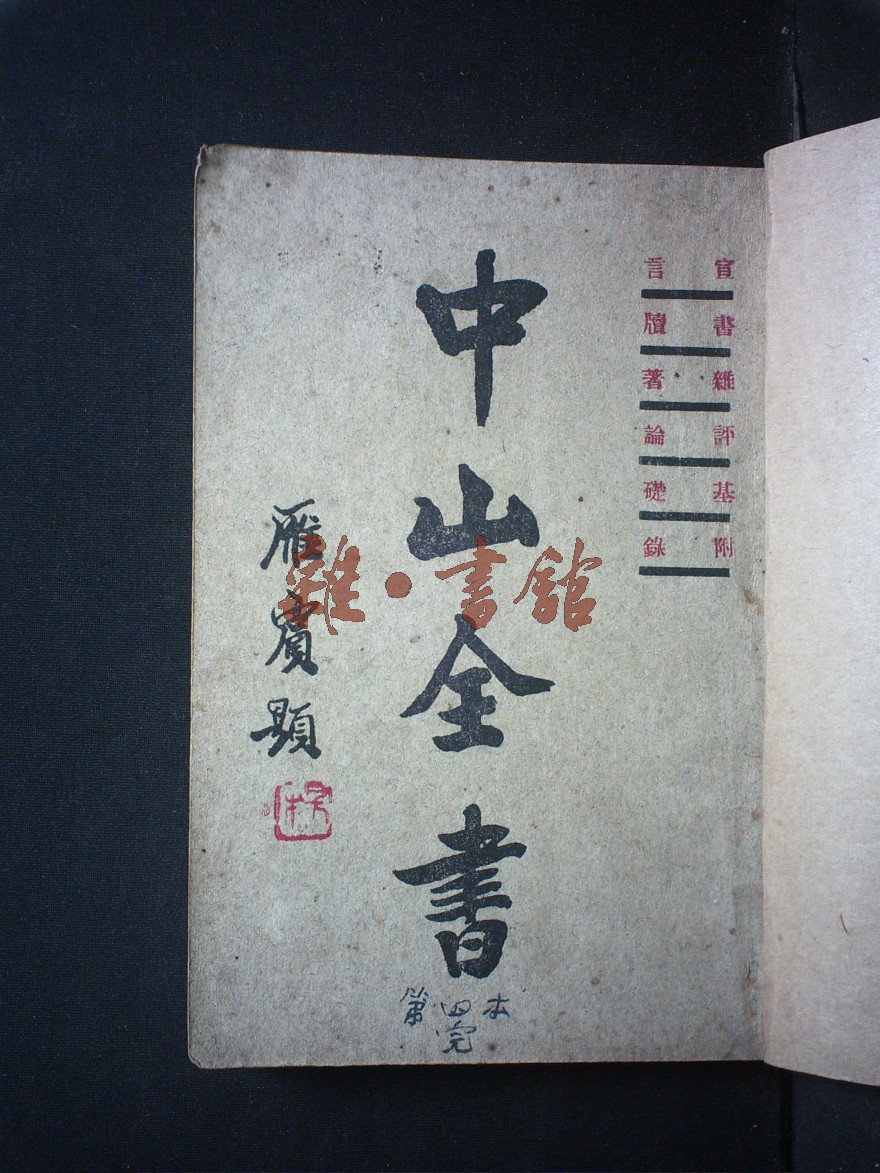 宣言
書牘
雜著
評論
基礎
附錄
中山全書
雁賓題
第四本
完
雜·書館